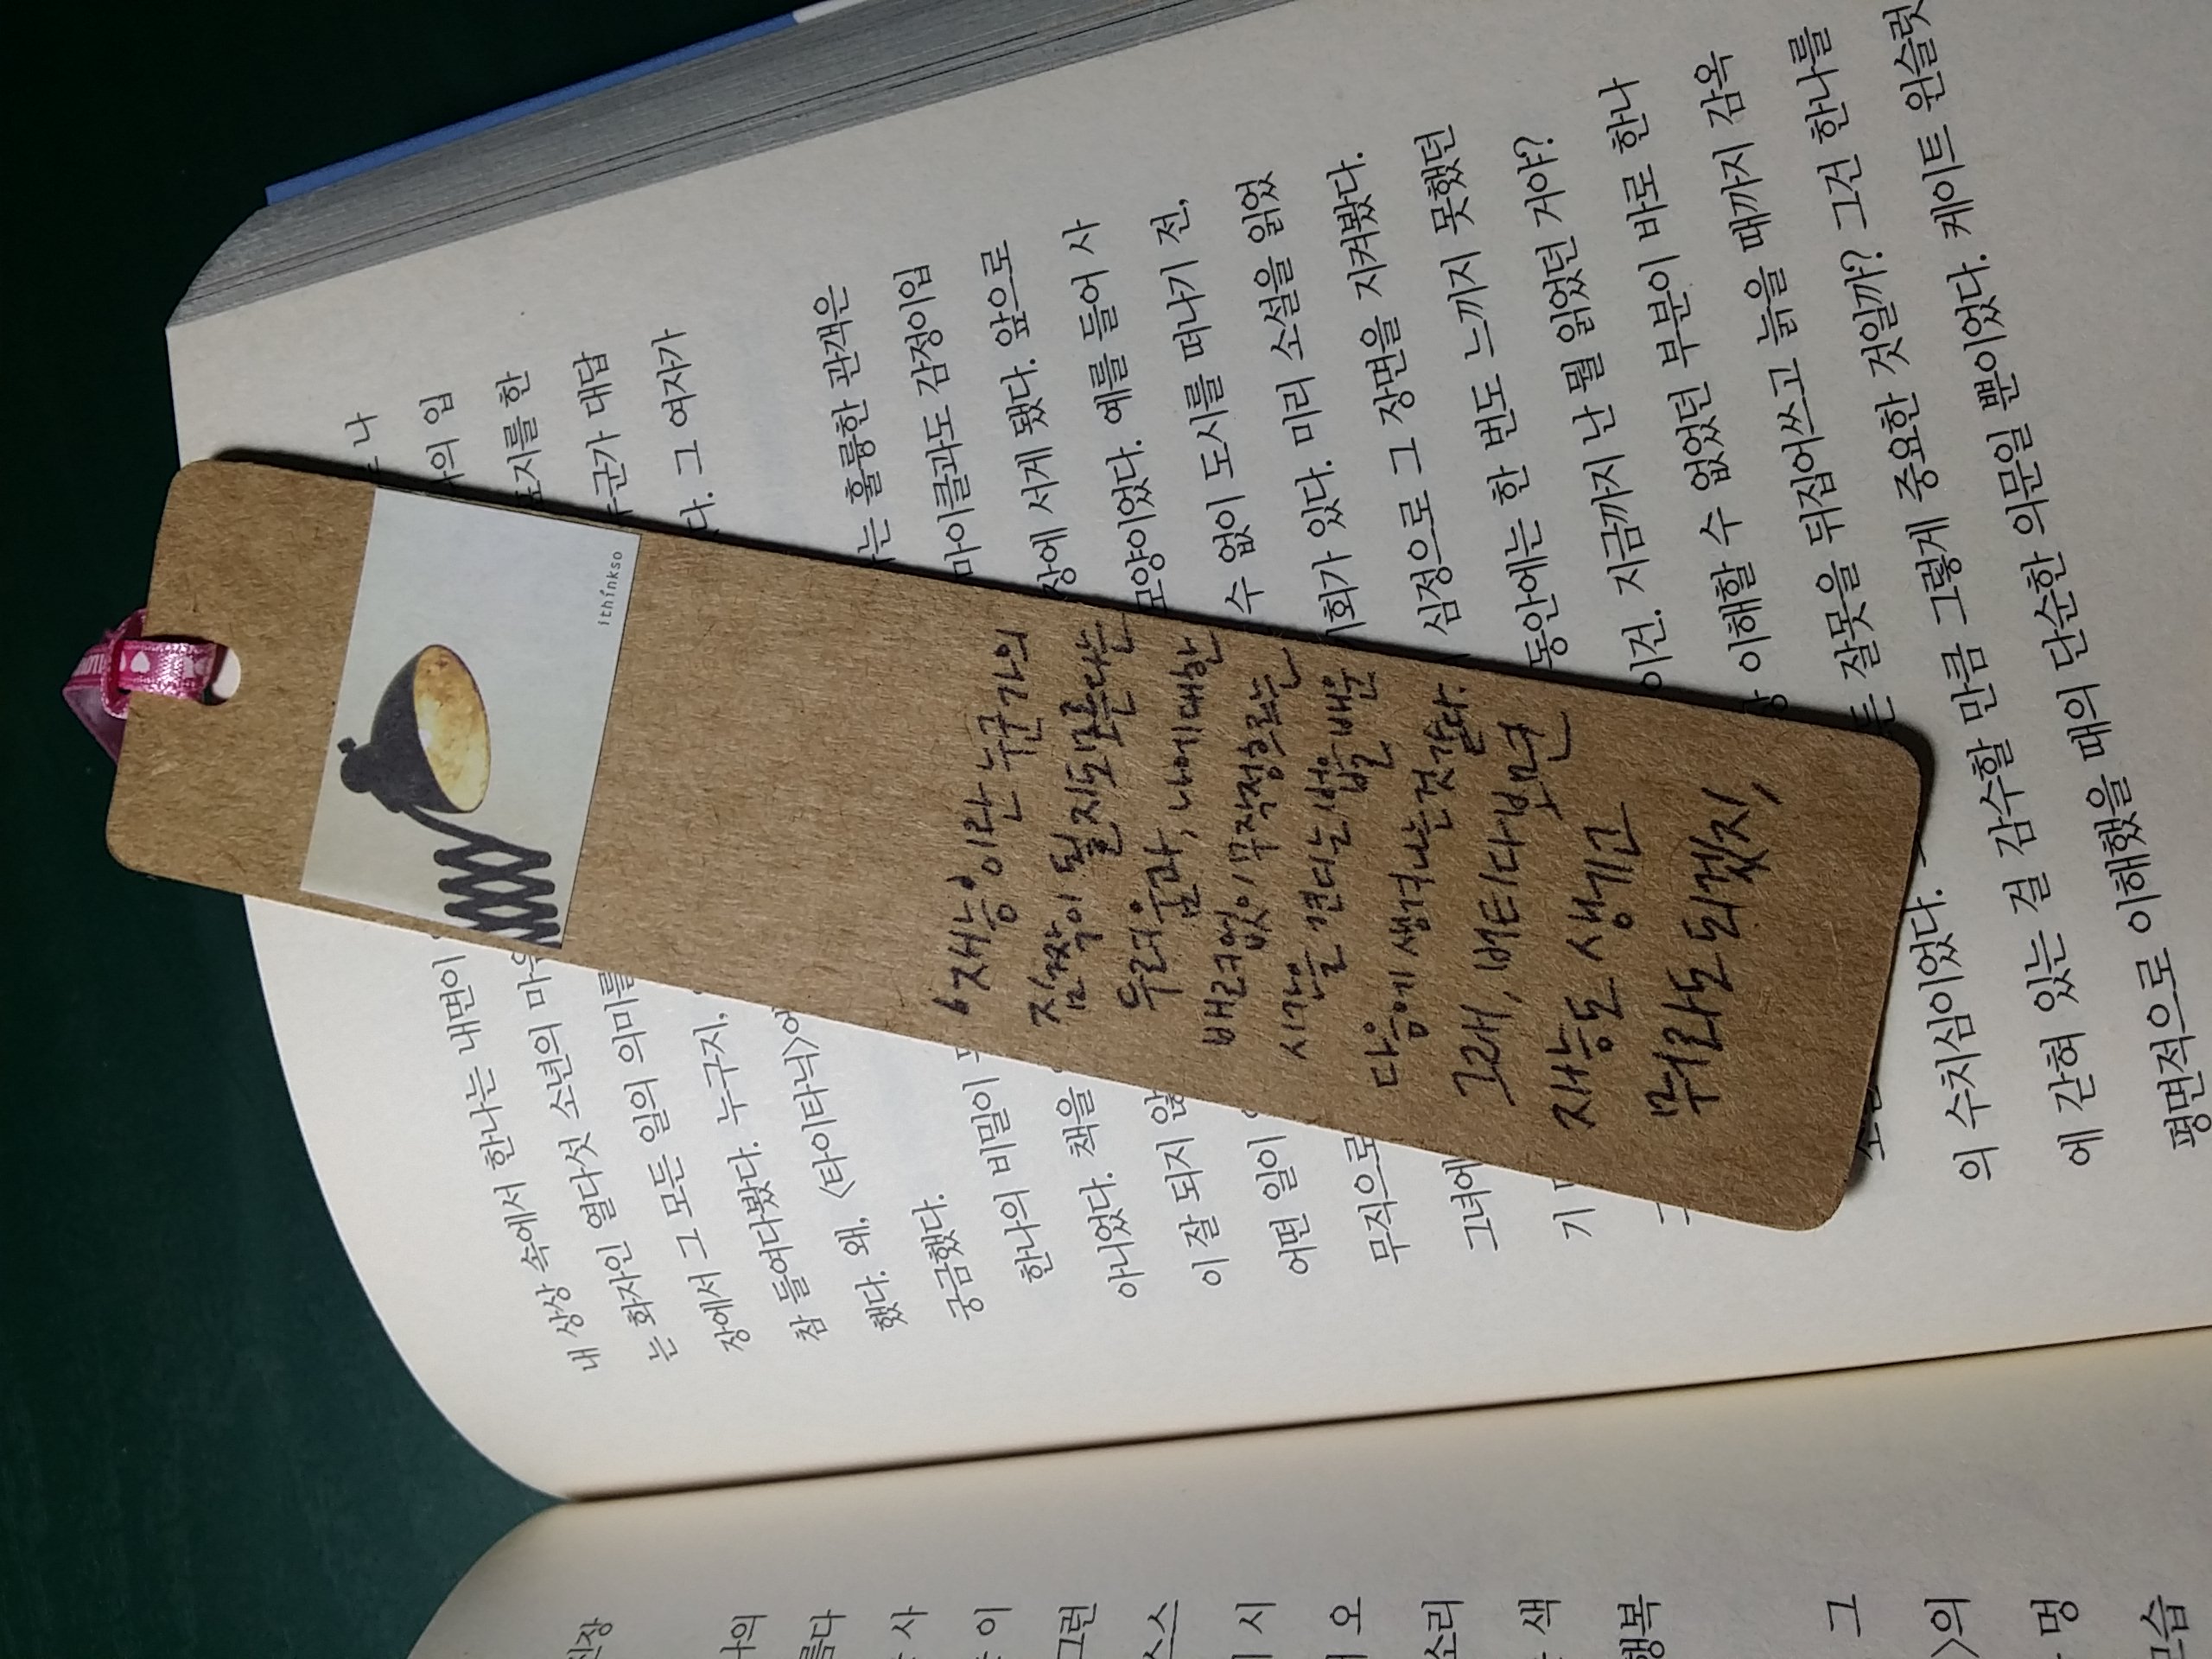 그런
시
오
소리
색
행복
그
〉의
멍
모습
내 상상 속에서 한나는 내면이 나
는 화자인 열다섯 소년의 입
장에서 그 모든 일의 의미를 표지를 한
참 들여다봤다. 누구지, 누군가 대답
했다. 왜, 〈타이타닉〉에 다. 그 여자가
궁금했다.
한나의 비밀이 는 훌륭한 관객은
아니었다. 책을 마이클과도 감정이입
이 잘 되지 않 장에 서게 됐다. 앞으로
어떤 일이 모양이었다. 예를 들어 사
무직으로 수 없이 도시를 떠나기 전,
그녀에 회가 있다. 미리 소설을 읽었
기 심정으로 그 장면을 지켜봤다.
동안에는 한 번도 느끼지 못했던
이건. 지금까지 난 뭘 읽었던 거야?
이해할 수 없었던 부분이 바로 한나
의 수치심이었다. 든 잘못을 뒤집어쓰고 늙을 때까지 감옥
에 갇혀 있는 걸 감수할 만큼 그렇게 중요한 것일까? 그건 한나를
평면적으로 이해했을 때의 단순한 의문일 뿐이었다. 케이트 윈슬럿
ithinkso
'재능이란 누군가의
짐짝이 될지도모른다는
두려움과, 나에대한
배려없이 무작정흐르는
시간을 견디는법을배운
다음에 생겨나는것같다.
그래, 버티다보면
재능도 생기고
뭐라도 되겠지,